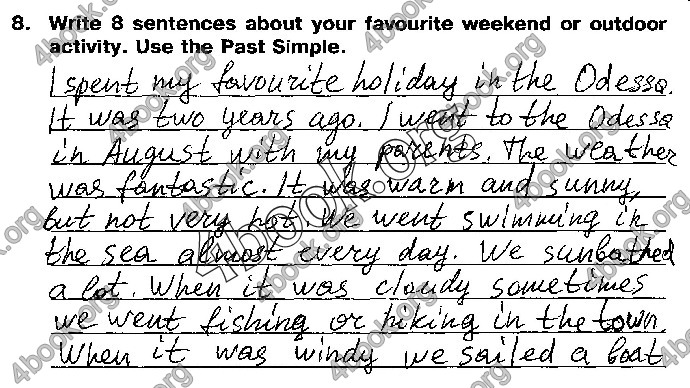 8. Write 8 sentences about your favourite weekend or outdoor
activity. Use the Past Simple.
I spent my favourite holiday in the Odessa.
It was two years ago. I went to the Odessa
in August with my parents. The weather
was fantastic. It was warm and sunny,
but not very hot. We went swimming in
the sea almost every day. We sunbathed
a lot. When it was cloudy sometimes
we went fishing or hiking in the town.
When it was windy we sailed a boat
4book.org